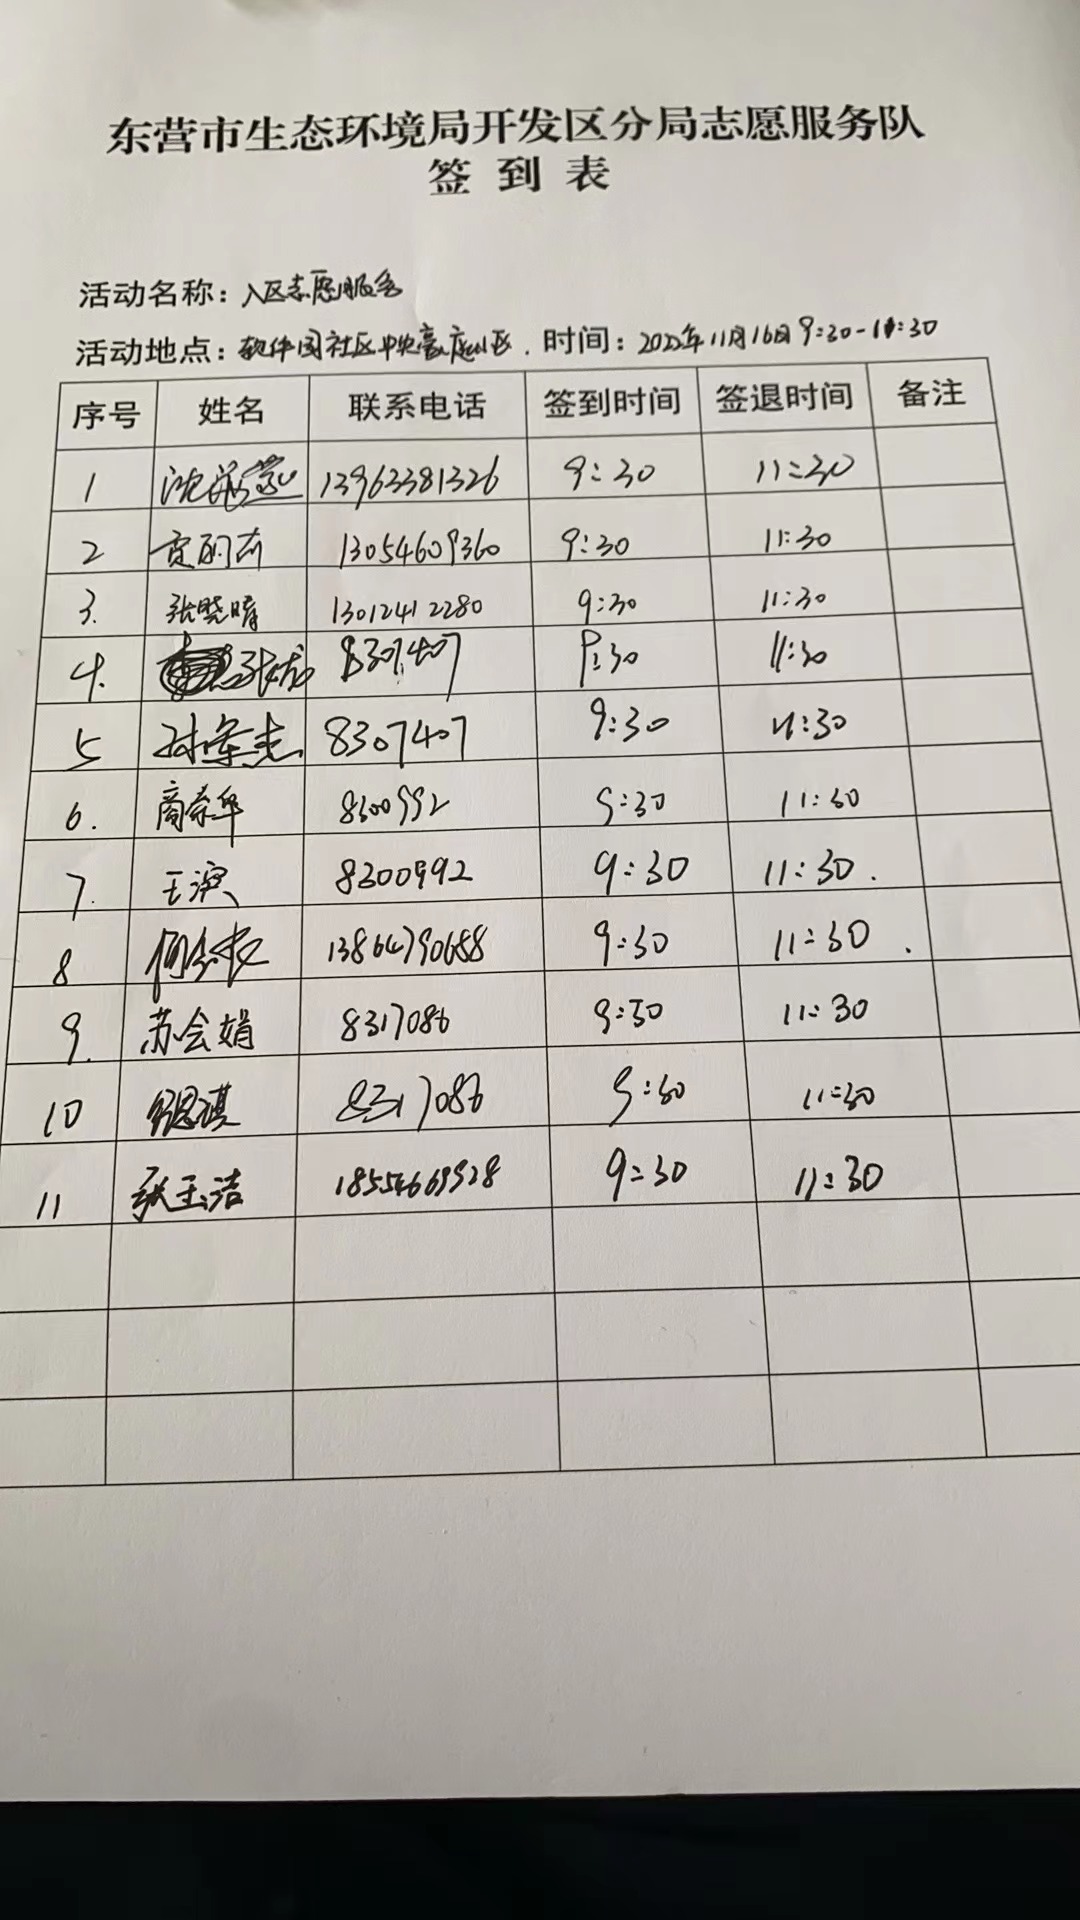 东营市生态环境局开发区分局志愿服务队
签到表
活动名称：入区志愿服务
活动地点：软件园社区中央豪庭小区. 时间：2022年11月16日9:30-11:30
序号 姓名 联系电话 签到时间 签退时间 备注
1 沈 13963381326 9:30 11:30
2 贾丽 13054609360 9:30 11:30
3. 张晓晴 13012412280 9:30 11:30
4. 张龙 8307407 9:30 11:30
5 孙 8307407 9:30 11:30
6. 商荣华 8300992 9:30 11:30
7. 王滨 8300992 9:30 11:30.
8 何 13864790688 9:30 11:30.
9. 苏会娟 8317086 9:30 11:30
10 思琪 8317086 9:30 11:30
11 张玉洁 18554669928 9:30 11:30